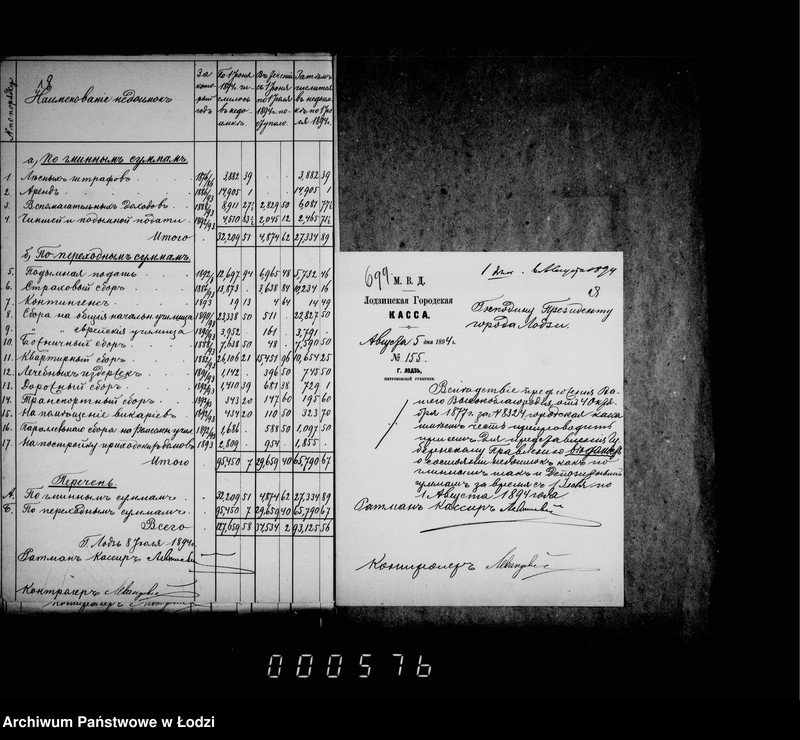 № по порядку
18
Наименованіе недоимокъ
За который годъ
По 1 Іюня 1894 г. числилось въ недоимкѣ.
Въ теченіи съ 1 Іюня по 1 Іюля 1894 г. поступило.
Затѣмъ числится въ недоимкѣ по 1 Іюля 1894 г.
а) По гминнымъ суммамъ.
1. Лѣсныхъ штрафовъ 3,882 39 3,882 39
2. Арендъ 14,905 1 14,905 1
3. Вспомагательныхъ доходовъ 8,911 27½ 2,829 50 6,081 77½
4. Чиншей и подымной подати 4,510 83½ 2,045 12 2,465 71½
Итого 32,209 51 4,874 62 27,334 89
б) По переходнымъ суммамъ.
5. Подымная подать 12,697 94 6,965 48 5,732 46
6. Страховый сборъ 13,873 3,638 84 10,234 16
7. Контингенсъ 1893 19 13 4 64 14 49
8. Сбора на общія начальн. училища 23338 50 511 22,827 50
9. " " Еврейскія училища 3,952 161 3,791
10. Больничный сборъ 7,638 50 48 7,590 50
11. Квартирный сборъ 26,106 21 15,451 96 10,654 25
12. Лечебныхъ издержекъ 1,142 396 50 745 50
13. Дорожный сборъ 1,410 39 681 38 729 1
14. Транспортный сборъ 343 20 147 60 195 60
15. На помощеніе викаріевъ 434 20 110 50 323 70
16. Паралельнаго сбора на Ремеслен. учил. 1,686 588 50 1,097 50
17. На постройку приходскихъ домовъ 1893 2,809 954 1,855
Итого 95450 7 29,659 40 65,790 67
Перечень.
А. По гминнымъ суммамъ 32,209 51 4874 62 27,334 89
Б. По переходнымъ суммамъ 95450 7 29,659 40 65,790 67
Всего 127,659 58 34,534 2 93,125 56
Г. Лодзь 8 Іюля 1894 г.
Ратманъ Кассиръ
Контролеръ
Контролеръ
699
М. В. Д.
Лодзинская Городская
КАССА.
Августа 5 дня 1894 г.
№ 155.
Г. ЛОДЗЬ,
ПЕТРОКОВСКОЙ ГУБЕРНІИ.
Августа 1894
18
Господину Президенту
города Лодзи.
Вслѣдствіе предписанія Ва-
шего Высокоблагородія отъ 4 Октя-
бря 1877 г. за № 8324, городская касса
имѣетъ честь препроводить
при семъ для представленія Гу-
бернскому Правленію вѣдомость
о состояніи недоимокъ какъ по
гминнымъ такъ и Депозитнымъ
суммамъ за время съ 1 Іюля по
1 Августа 1894 года
Ратманъ Кассиръ
Контролеръ
000576
Archiwum Państwowe w Łodzi